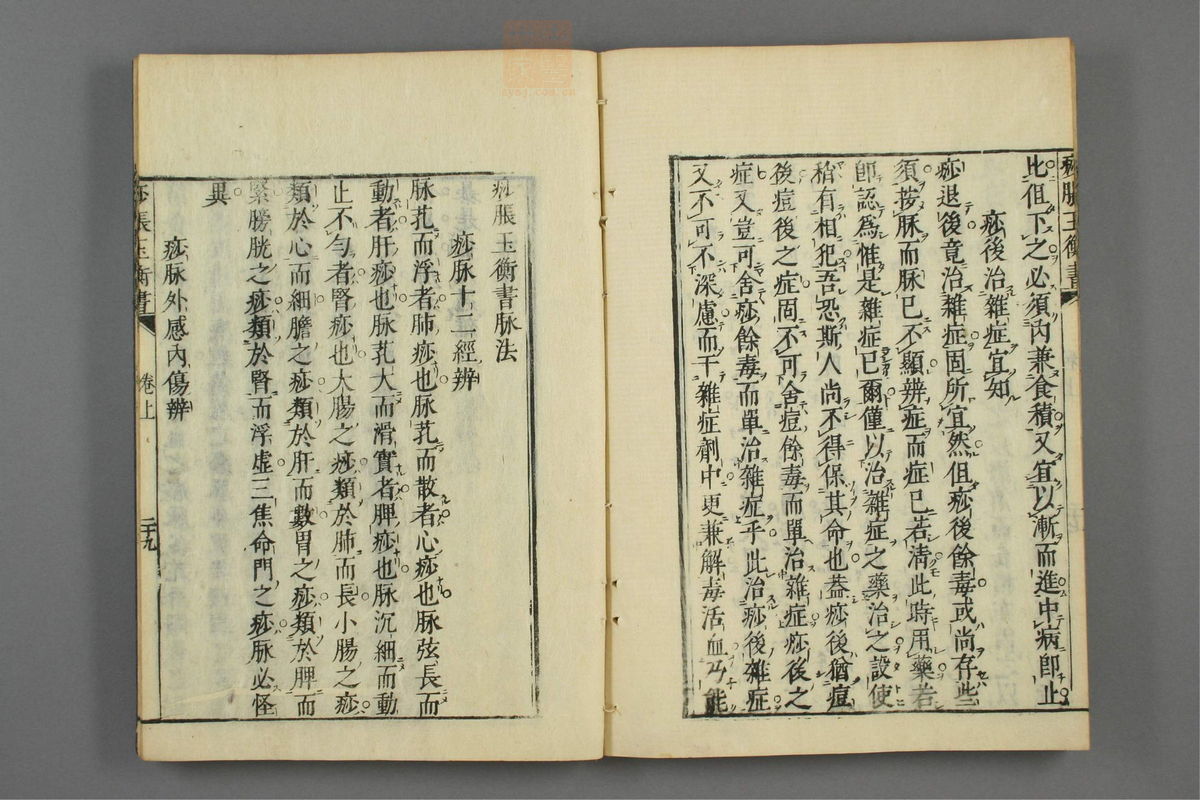 痧脹玉衡書
比但下之必須內兼食積又宜以漸而進中病即止
痧後治雜症宜知
痧退後竟治雜症固所宜然但痧後餘毒或尚存些
須按脉而脉已不顯辨症而症已若清此時用藥若
即認爲惟是雜症已爾僅以治雜症之藥治之設使
稍有相犯吾恐斯人尚不得保其命也葢痧後猶痘
後痘後之症固不可舍痘餘毒而單治雜症痧後之
症又豈可舍痧餘毒而單治雜症乎此治痧後雜症
又不可不深慮而于雜症劑中更兼解毒活血乃能
痧脹玉衡書脉法
痧脉十二經辨
脉芤而浮者肺痧也脉芤而散者心痧也脉弦長而
動者肝痧也脉芤大而滑實者脾痧也脉沉細而動
止不勻者腎痧也大腸之痧類於肺而長小腸之痧
類於心而細膽之痧類於肝而數胃之痧類於脾而
緊膀胱之痧類於腎而浮虛三焦命門之痧脉必怪
異
痧脉外感內傷辨
痧脹玉衡書
卷上
二十九